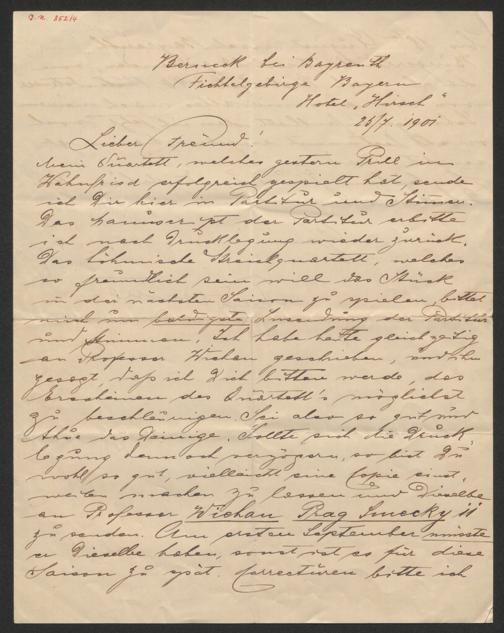 J. N. 352/4
Berneck bei Bayreuth
Fichtelgebirge Bayern
Hotel „Hirsch“
25/7. 1901
Lieber Freund!
Mein Quartett, welches gestern Prill in
Wahnfried erfolgreich gespielt hat, sende
ich Dir hier in Partitur und Stimmen.
Das Manuscript der Partitur erbitte
ich nach Drucklegung wieder zurück.
Das böhmische Streichquartett, welches
so freundlich sein will das Stück
in der nächsten Saison zu spielen, bittet
mich um baldigste Zusendung der Partitur
und Stimmen. Ich habe heute gleichzeitig
an Professor Wihan geschrieben, und ihm
gesagt, daß ich Dich bitten werde, das
Erscheinen des Quartett's möglichst
zu beschleunigen. Sei also so gut und
thue das Deinige. Sollte sich die Druck-
legung dennoch verzögern, so bist Du
wohl so gut, vielleicht eine Copie einst-
weilen machen zu lassen und dieselbe
an Professor Wichan Prag Smecky 11
zu senden. Am ersten September müsste
er Dieselbe haben, sonst ist es für diese
Saison zu spät. Correcturen bitte ich